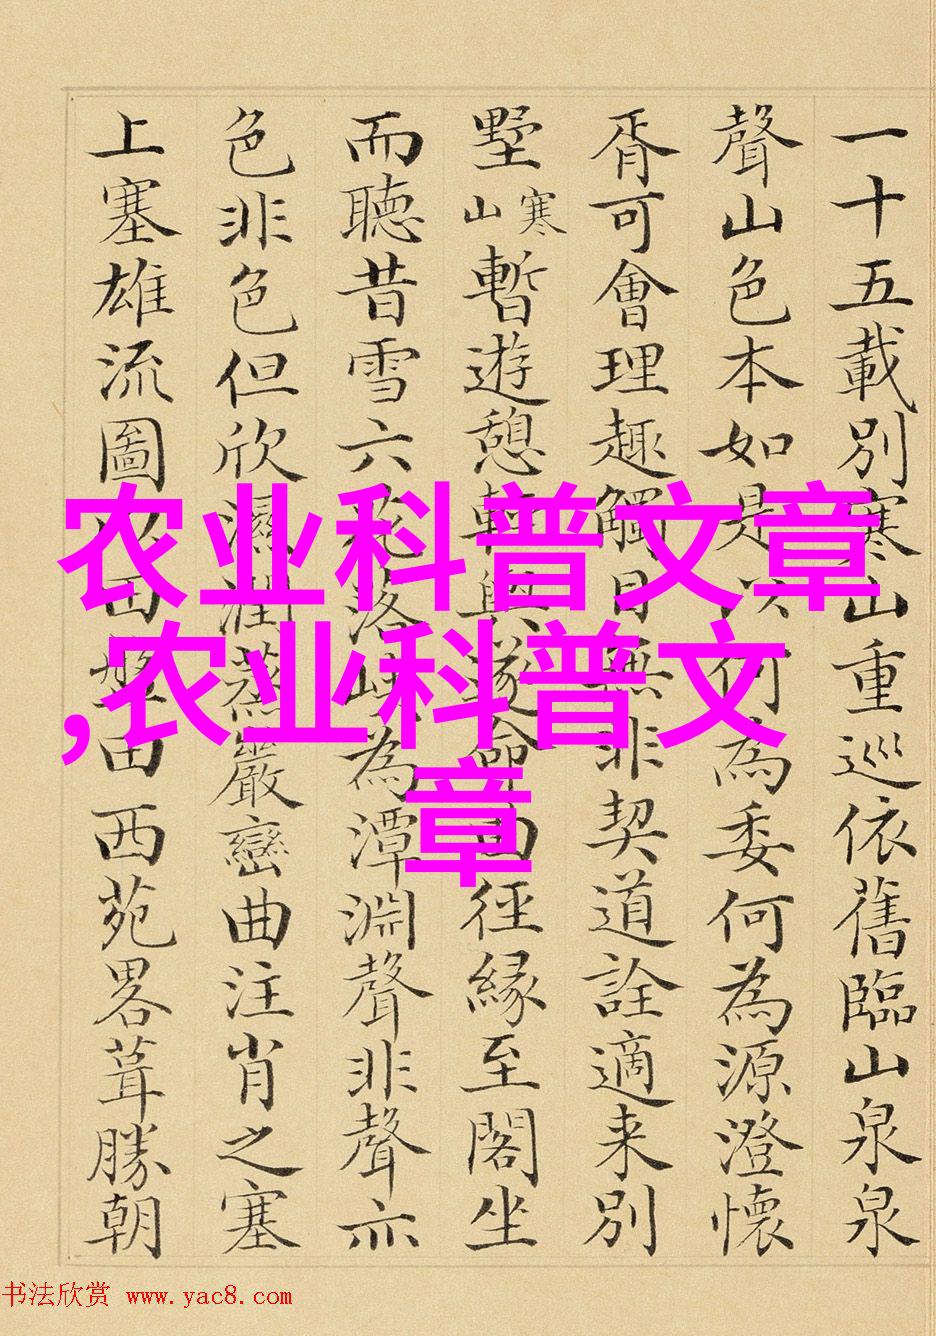 一十五載別寒山重巡依舊臨山泉泉
聲山色本如是以何為委何為源澄懷
胥可會理趣觸目無非契道詮適来別
墅寒山暫遊憩輕輿遂命由徑緣至閣坐
而聽昔雪六花落峽為潭淵聲非聲亦
色非色但欣濕潤蒸巖巒曲注肖之塞
上塞雄流圖以田盤田西苑畧葺勝朝
农业科普文章
,农业科普文
章
书法欣赏 www.yac8.com